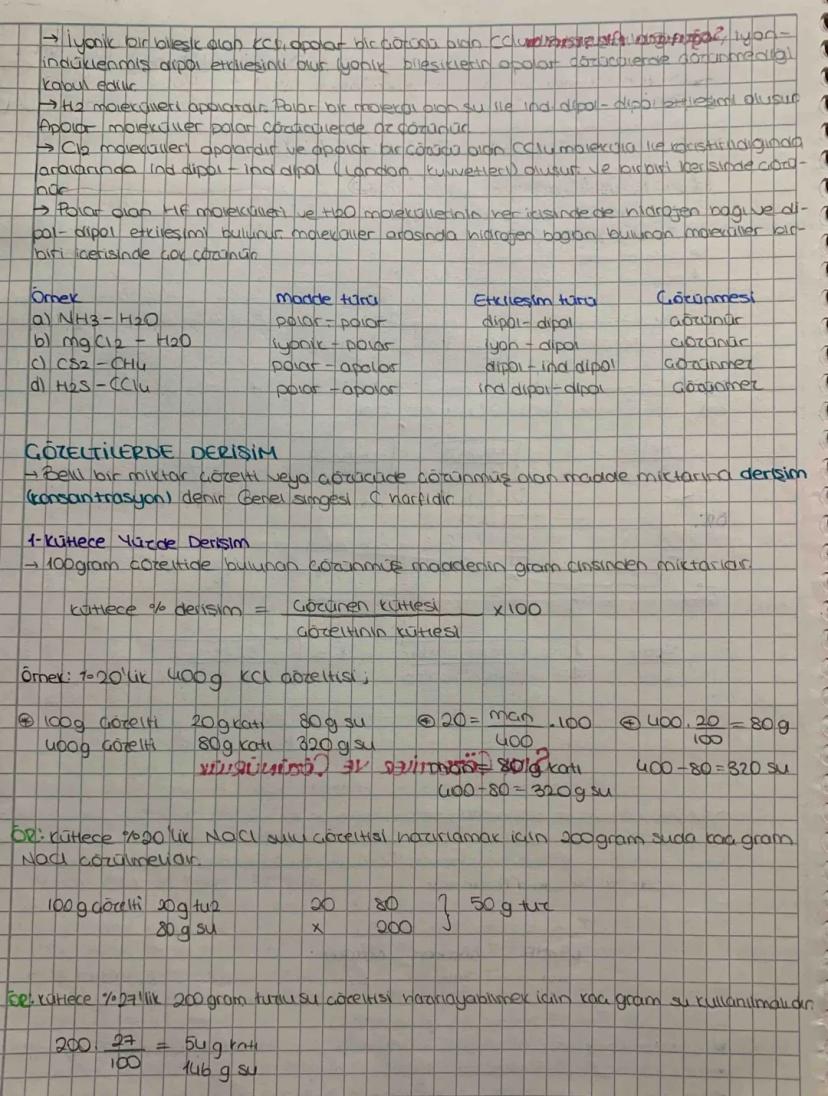 → İyonik bir bileşik olan KCl, apolar bir çözücü olan CCl4 iyon-
indüklenmiş dipol etkileşimi olur. İyonik bileşiklerin apolar çözücülerde çözünmediği
kabul edilir.
→ H2 molekülleri apolardır. Polar bir molekül olan su ile ind dipol-dipol etkileşimi oluşur
Apolar moleküller polar çözücülerde az çözünür.
→ Cl2 molekülleri apolardır ve apolar bir çözücü olan CCl4 molekülü ile karıştırıldığında
aralarında ind dipol - ind dipol (London kuvvetleri) oluşur ve birbiri içerisinde çözü-
nür
→ Polar olan HF molekülleri ve H2O moleküllerinin her ikisinde de hidrojen bağı ve di-
pol-dipol etkileşimi bulunur. moleküller arasında hidrojen bağları bulunan moleküller bir-
biri içerisinde çok çözünür
Örnek madde türü Etkileşim türü Çözünmesi
a) NH3-H2O polar-polar dipol-dipol çözünür
b) mgCl2 - H2O iyonik-polar iyon-dipol çözünür
c) CS2-CH4 polar-apolar dipol-ind dipol çözünmez
d) H2S-CCl4 polar-apolar ind dipol-dipol çözünmez
ÇÖZELTİLERDE DERİŞİM
→ Belli bir miktar çözelti veya çözücüde çözünmüş olan madde miktarına derişim
(konsantrasyon) denir. Genel simgesi C harfidir.
1-Kütlece Yüzde Derişim
→ 100 gram çözeltide bulunan çözünmüş maddenin gram cinsinden miktarıdır.
kütlece % derişim = Çözünen kütlesi x100
Çözeltinin kütlesi
Örnek: %20'lik 400g KCl çözeltisi;
+ 100g çözelti 20g katı 80g su + 20 = mçn .100 + 400. 20 = 80g
400g çözelti 80g katı 320g su 400 100
= 80g katı 400-80=320 su
400-80=320g su
ÖR: Kütlece %20'lik NaCl sulu çözeltisi hazırlamak için 200gram suda kaç gram
NaCl çözülmelidir.
100g çözelti 20g tuz 20 80 } 50 g tuz
80g su x 200
ÖR: kütlece %27'lik 200gram turşu su çözeltisi hazırlayabilmek için kaç gram su kullanılmalıdır
200. 27 = 54 g katı
100 146 g su